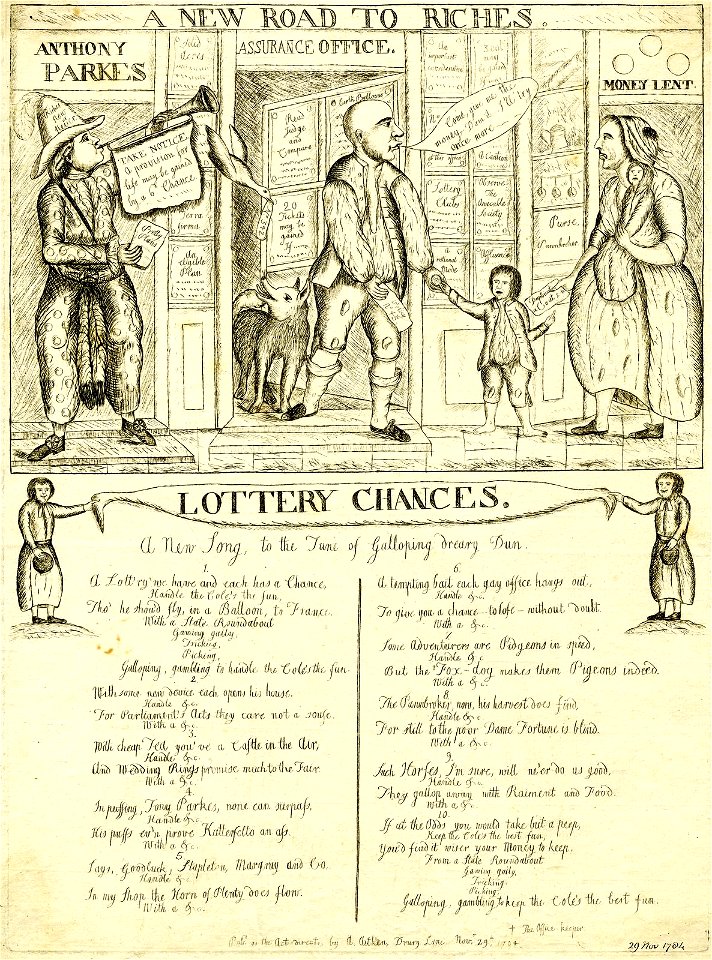 A NEW ROAD TO RICHES.
ANTHONY
PARKES
ASSURANCE OFFICE.
MONEY LENT
TAKE NOTICE
A provision for
life may be gain'd
by a 6d Chance
Terra
firma
An
eligible
Plan
Read
Judge
and
Compare
Earth Balloons
20
Tickets
may be
gained
Come give me the
money Dem I'll try
once more
Lottery
Clubs
A
rational
Mode
Society
Purse.
Pawnbroker
LOTTERY CHANCES.
A New Song, to the Tune of Galloping dreary Dun.
1.
A Lott'ry we have and each has a Chance,
Handle the Cole's the fun,
Tho' he should fly, in a Balloon, to France.
With a State Roundabout
Gaming gaily,
Tricking,
Picking,
Galloping, gambling to handle the Cole's the fun.
2.
With some new device each opens his house.
Handle &c.
For Parliament's Acts they care not a souse.
With a &c.
3.
With cheap Tea you've a Castle in the Air,
Handle &c.
And Wedding Rings promise much to the Fair.
With a &c.
4.
In puffing, Tony Parkes, none can surpass,
Handle &c.
His puffs ev'n prove Katterfelto an ass.
With a &c.
5.
Says, Goodluck, Stapleton, Margray and Co.
Handle &c.
In my Shop the Horn of Plenty does flow.
With a &c.
6
A tempting bait each gay office hangs out,
Handle &c.
To give you a chance to lose without doubt.
With a &c.
7
Some Adventurers are Pidgeons in speed,
Handle &c
But the Fox-dog makes them Pigeons indeed.
With a &c.
8.
The Pawnbroker, now, his harvest does find,
Handle &c
For still to the poor Dame Fortune is blind.
With a &c.
9.
Such Horses, I'm sure, will ne'er do us good,
Handle &c.
They gallop away with Raiment and Food.
With a &c.
10.
If at the Odds you would take but a peep,
Keep the Cole's the best fun,
You'd find it wiser your Money to keep,
From a State Roundabout
Gaming gaily,
Tricking.
Picking.
Galloping, gambling to keep the Cole's the best fun.
† The Office keeper
by A. Aitken, Drury Lane. Novr. 29th 1784
29 Nov 1784